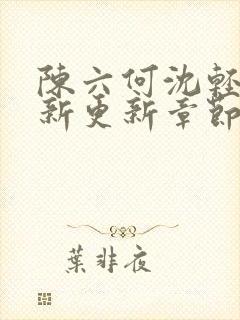 陳六何沈輕
新更新章節
葉非夜